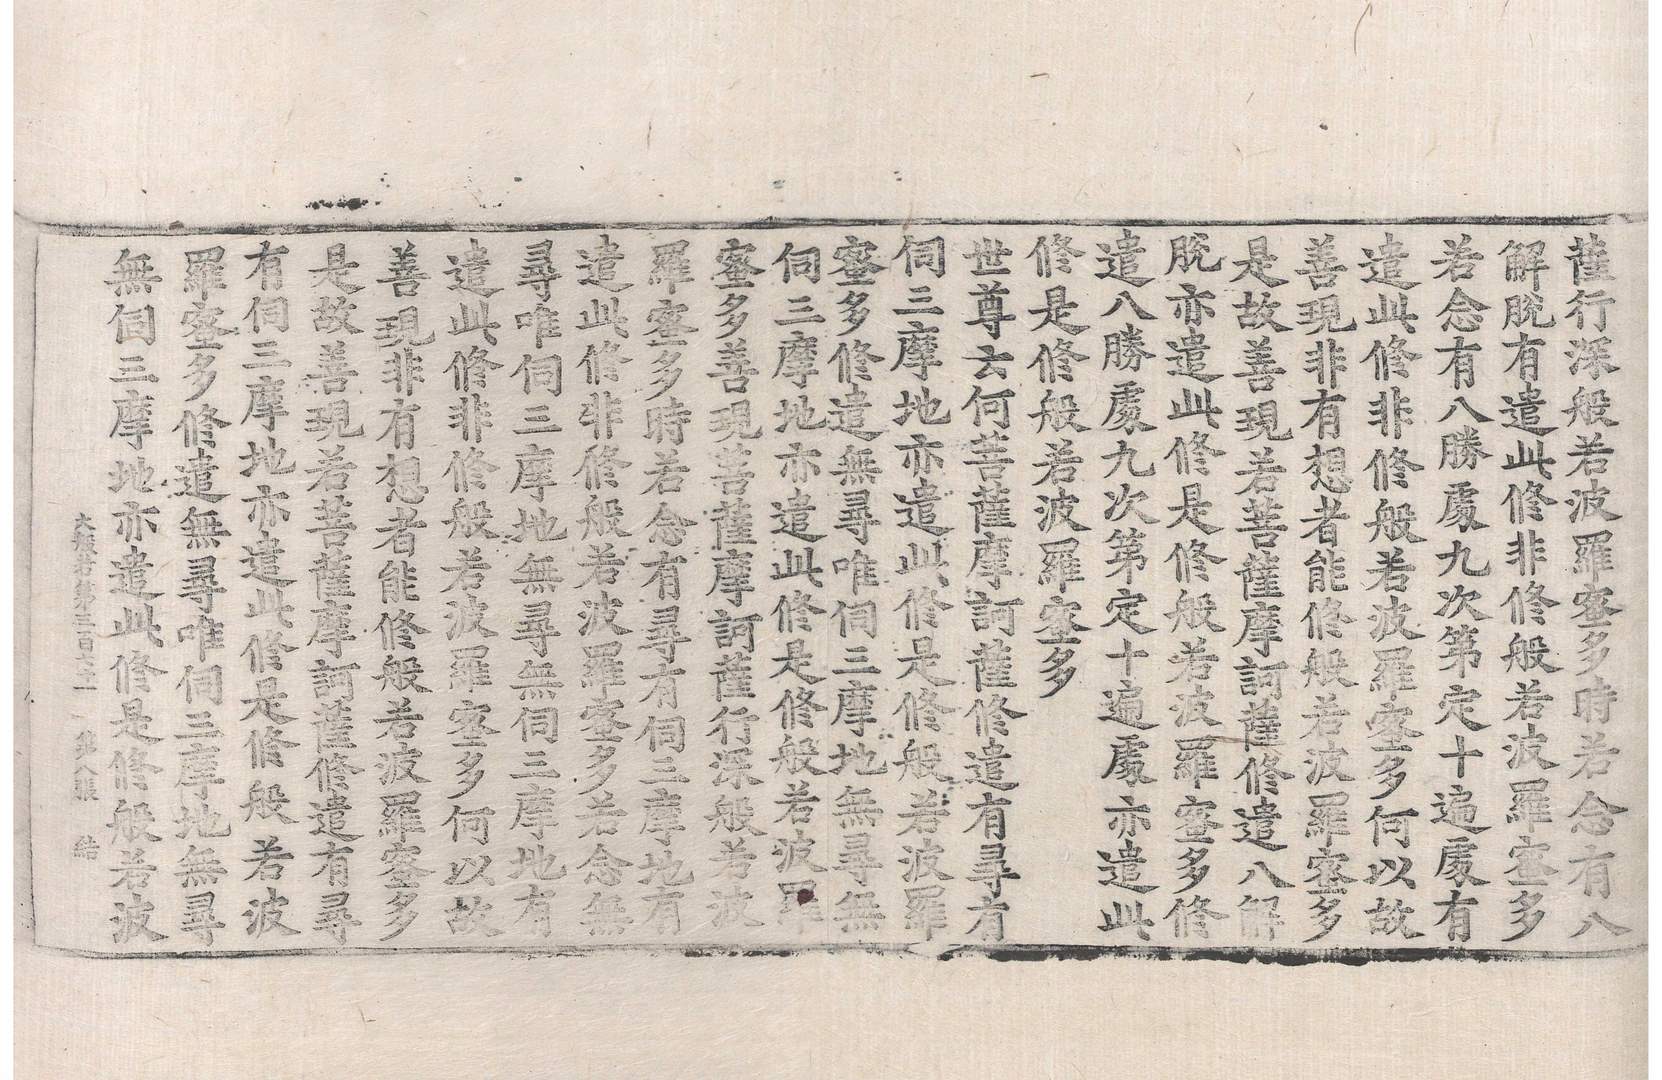 薩行深般若波羅蜜多時若念有八
解脫有遣此修非修般若波羅蜜多
若念有八勝處九次第定十遍處有
遣此修非修般若波羅蜜多何以故
善現非有想者能修般若波羅蜜多
是故善現若菩薩摩訶薩修遣八解
脫亦遣此修是修般若波羅蜜多修
遣八勝處九次第定十遍處亦遣此
修是修般若波羅蜜多
世尊云何菩薩摩訶薩修遣有尋有
伺三摩地亦遣此修是修般若波羅
蜜多修遣無尋唯伺三摩地無尋無
伺三摩地亦遣此修是修般若波羅
蜜多善現菩薩摩訶薩行深般若波
羅蜜多時若念有尋有伺三摩地有
遣此修非修般若波羅蜜多若念無
尋唯伺三摩地無尋無伺三摩地有
遣此修非修般若波羅蜜多何以故
善現非有想者能修般若波羅蜜多
是故善現若菩薩摩訶薩修遣有尋
有伺三摩地亦遣此修是修般若波
羅蜜多修遣無尋唯伺三摩地無尋
無伺三摩地亦遣此修是修般若波
大般若第三百七十一 第八張 結